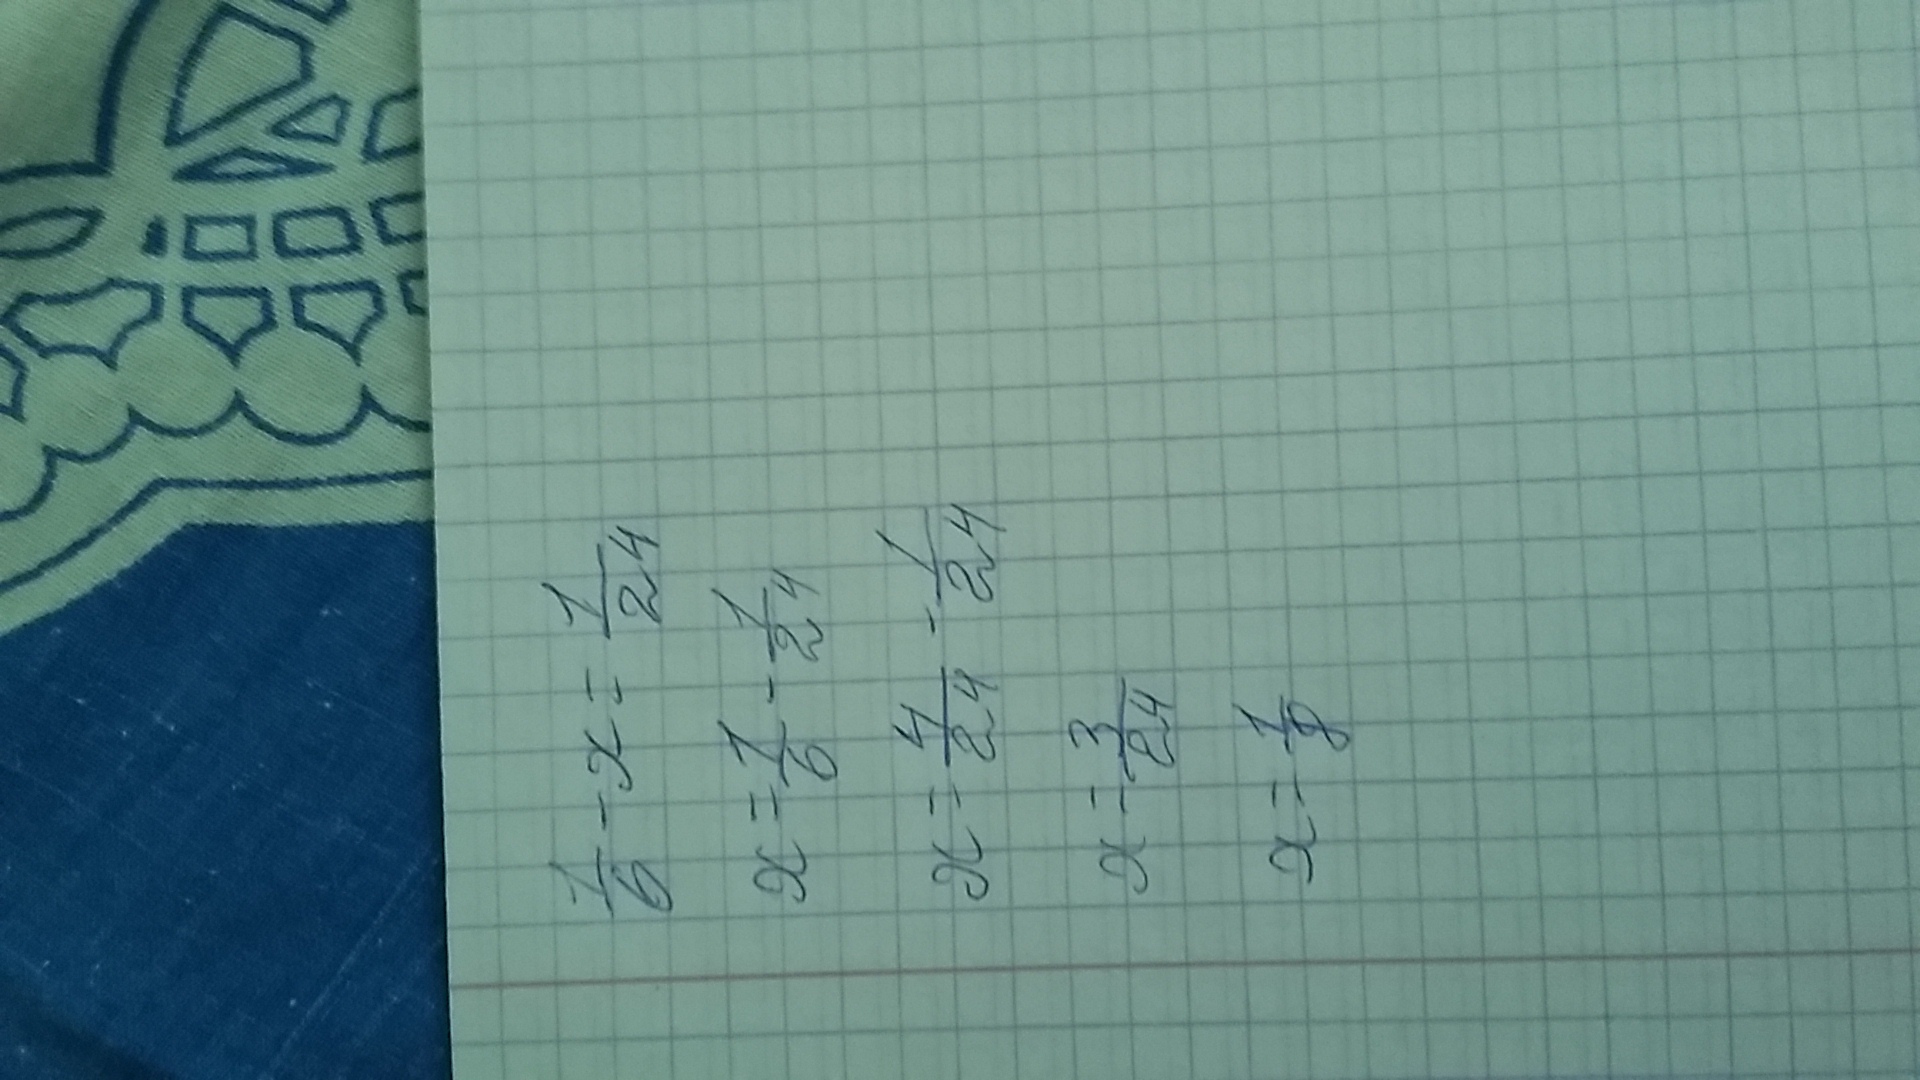 1/6 - x = 1/24
x = 1/6 - 1/24
x = 4/24 - 1/24
x = 3/24
x = 1/8